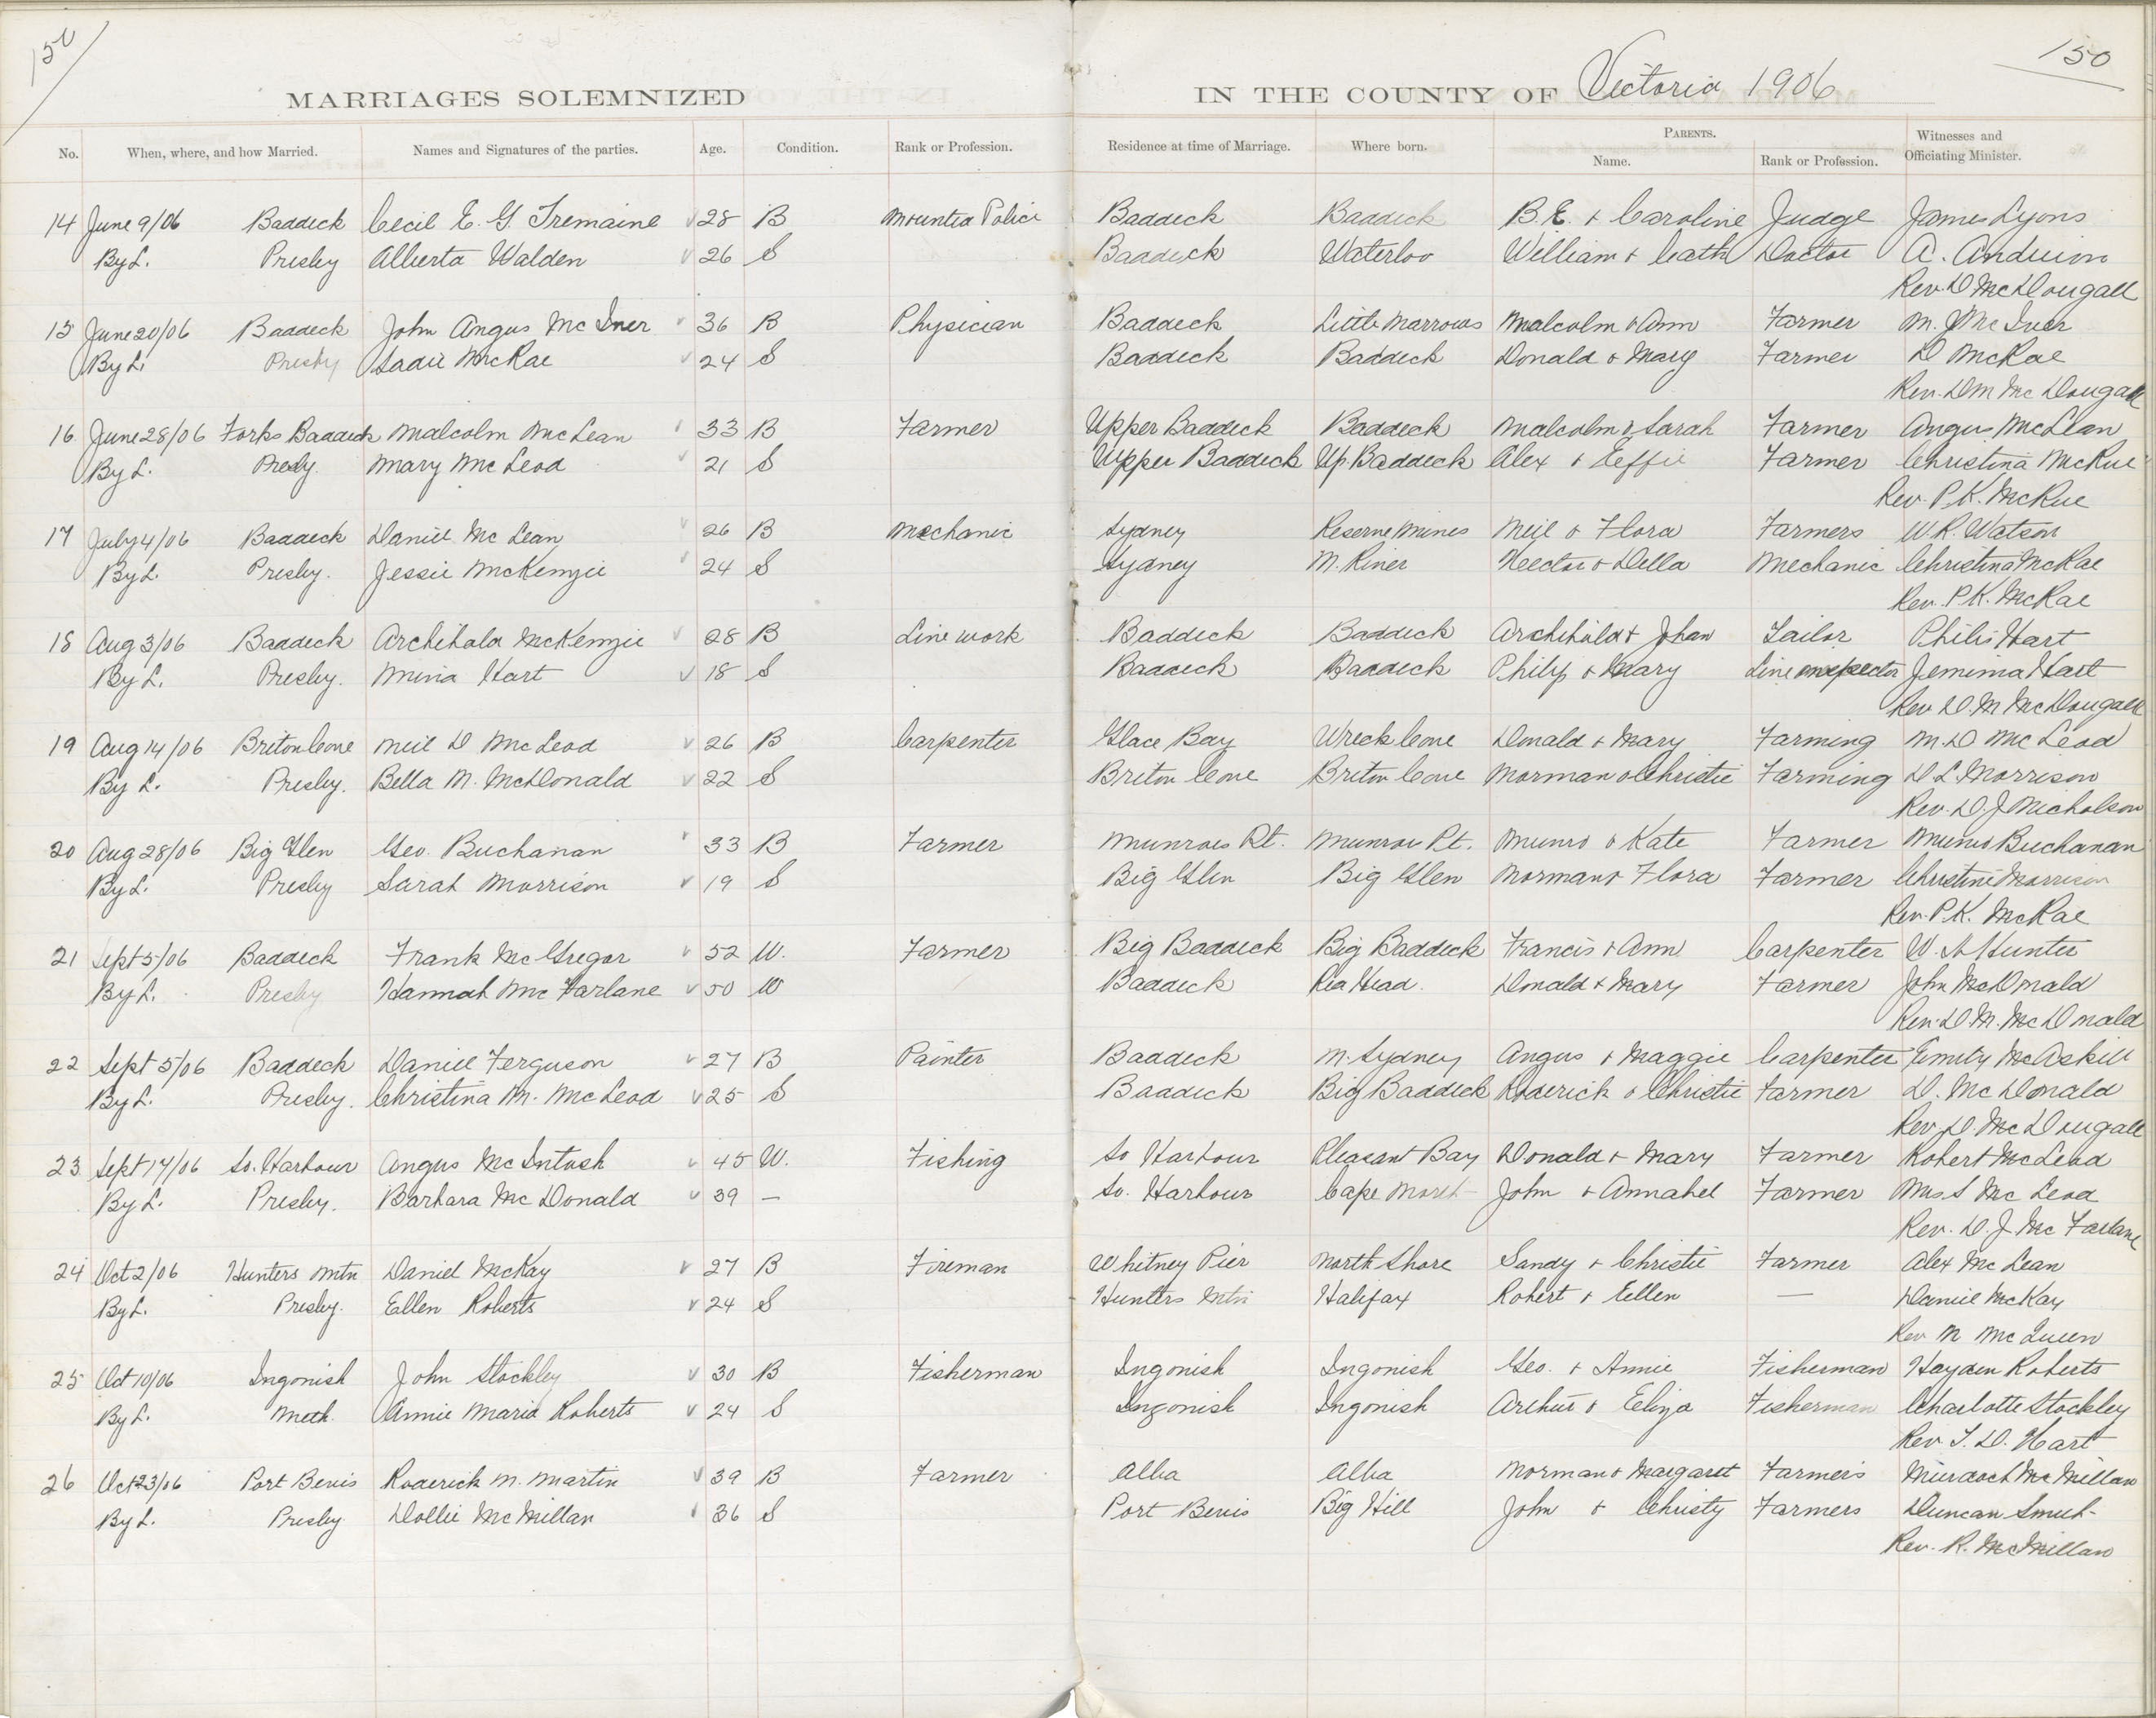 150
150
MARRIAGES SOLEMNIZED IN THE COUNTY OF Victoria 1906
No. When, where, and how Married. Names and Signatures of the parties. Age. Condition. Rank or Profession. Residence at time of Marriage. Where born. PARENTS. Name. Rank or Profession. Witnesses and Officiating Minister.
14 June 9/06 Baddeck Cecil E. G. Tremaine 28 B Mounted Police Baddeck Baddeck B. E. + Caroline Judge James Lyons
By L. Presby Alberta Walden 26 S Baddeck Waterloo William + Cath Doctor A. Anderson
Rev. D McDougall
15 June 20/06 Baddeck John Angus McIver 36 B Physician Baddeck Little Narrows Malcolm & Ann Farmer M. J McIver
By L. Presby Sadie McRae 24 S Baddeck Baddeck Donald & Mary Farmer D McRae
Rev. D M McDougall
16 June 28/06 Forks Baddeck Malcolm McLean 33 B Farmer Upper Baddeck Baddeck Malcolm & Sarah Farmer Angus McLean
By L. Presby. Mary McLeod 21 S Upper Baddeck Up. Baddeck Alex & Effie Farmer Christina McRae
Rev. P. K. McRae
17 July 4/06 Baddeck Daniel McLean 26 B Mechanic Sydney Reserve Mines Neil & Flora Farmers W. R. Watson
By L. Presby. Jessie McKenzie 24 S Sydney M. River Hector & Della Mechanic Christina McRae
Rev. P. K. McRae
18 Aug 3/06 Baddeck Archibald McKenzie 28 B Line work Baddeck Baddeck Archibald + Johan Tailor Philis Hart
By L. Presby. Mina Hart 18 S Baddeck Baddeck Philip & Mary Line inspector Jemima Hart
Rev D. M McDougall
19 Aug 14/06 Breton Cove Neil D McLeod 26 B Carpenter Glace Bay Wreck Cove Donald + Mary Farming M. D McLeod
By L. Presby. Bella M. McDonald 22 S Breton Cove Breton Cove Norman & Christie Farming D L. Morrison
Rev. D. J Nicholson
20 Aug 28/06 Big Glen Geo. Buchanan 33 B Farmer Munroes Pt. Munroe Pt. Munro & Kate Farmer Munro Buchanan
By L. Presby Sarah Morrison 19 S Big Glen Big Glen Norman & Flora Farmer Christine Morrison
Rev. P. K. McRae
21 Sept 5/06 Baddeck Frank McGregor 52 W. Farmer Big Baddeck Big Baddeck Francis & Ann Carpenter W. A Hunter
By L. Presby Hannah McFarlane 50 W Baddeck Red Head. Donald & Mary Farmer John McDonald
Rev. D. M. McDonald
22 Sept 5/06 Baddeck Daniel Ferguson 27 B Painter Baddeck N. Sydney Angus & Maggie Carpenter Emily McAskill
By L. Presby. Christina M. McLeod 25 S Baddeck Big Baddeck Roderick & Christie Farmer D. McDonald
Rev. D McDougall
23 Sept 17/06 So. Harbour Angus McIntosh 45 W. Fishing So Harbour Pleasant Bay Donald + Mary Farmer Robert McLeod
By L. Presby. Barbara McDonald 39 — So. Harbour Cape North John + Annabel Farmer Mrs S McLeod
Rev. D. J. McFarlane
24 Oct 2/06 Hunters Mtn Daniel McKay 27 B Fireman Whitney Pier North Shore Sandy + Christie Farmer Alex McLean
By L. Presby. Ellen Roberts 24 S Hunters Mtn Halifax Robert + Ellen — Daniel McKay
Rev M McQueen
25 Oct 10/06 Ingonish John Stockley 30 B Fisherman Ingonish Ingonish Geo. + Annie Fisherman Hayden Roberts
By L. Meth. Annie Maria Roberts 24 S Ingonish Ingonish Arthur & Eliza Fisherman Charlotte Stockley
Rev. T. D. Hart
26 Oct 23/06 Port Bevis Roderick M. Martin 39 B Farmer Alba Alba Norman & Margaret Farmers Murdoch McMillan
By L. Presby. Dollie McMillan 36 S Port Bevis Big Hill John & Christy Farmers Duncan Smith
Rev. R. McMillan